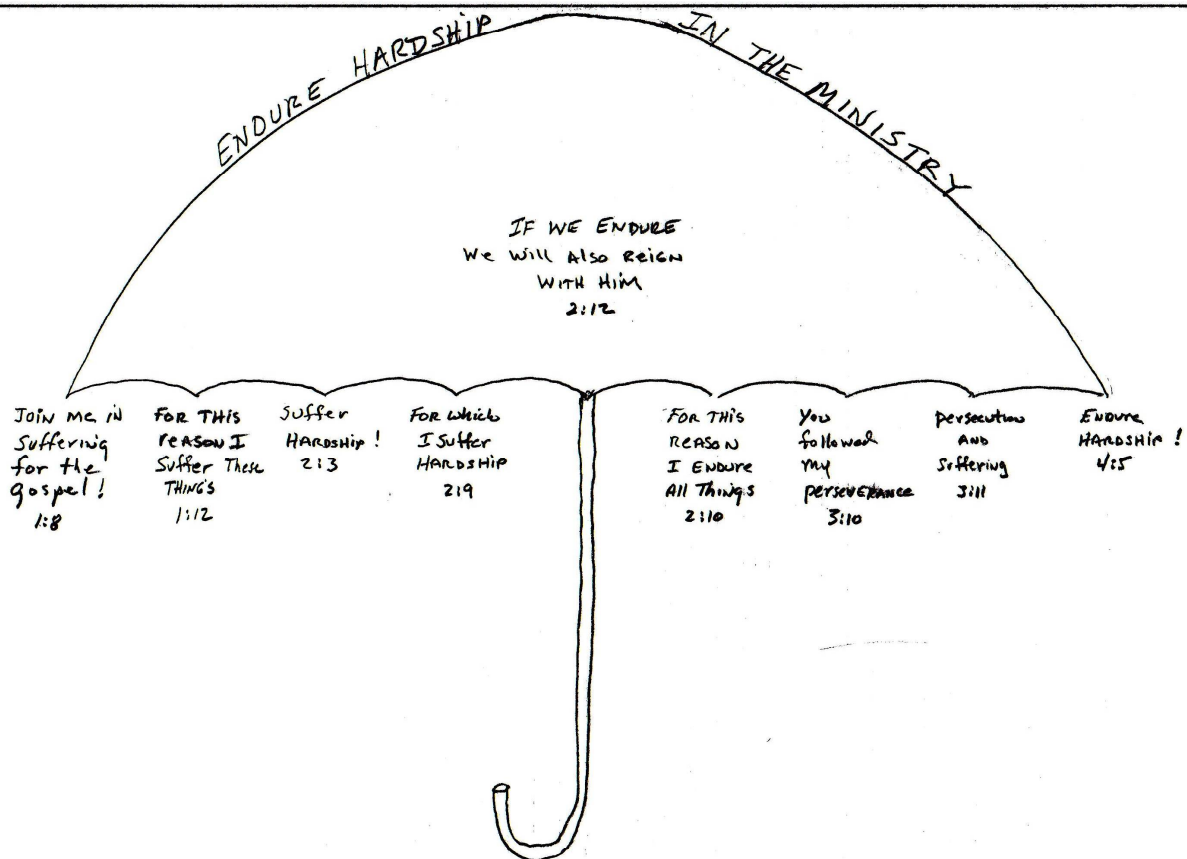 ENDURE HARDSHIP
IN THE MINISTRY
IF WE ENDURE
We Will Also Reign
WITH HiM
2:12
JOIN Me iN
Suffering
for the
gospel!
1:8
FOR THIS
reASON I
Suffer These
THING'S
1:12
Suffer
HARDSHIP!
2:3
FOR which
I Suffer
HARDSHIP
2:9
FOR THIS
REASON
I ENDURE
All Things
2:10
You
followed
my
perseverance
3:10
persecution
AND
Suffering
3:11
ENDURE
HARDSHIP!
4:5